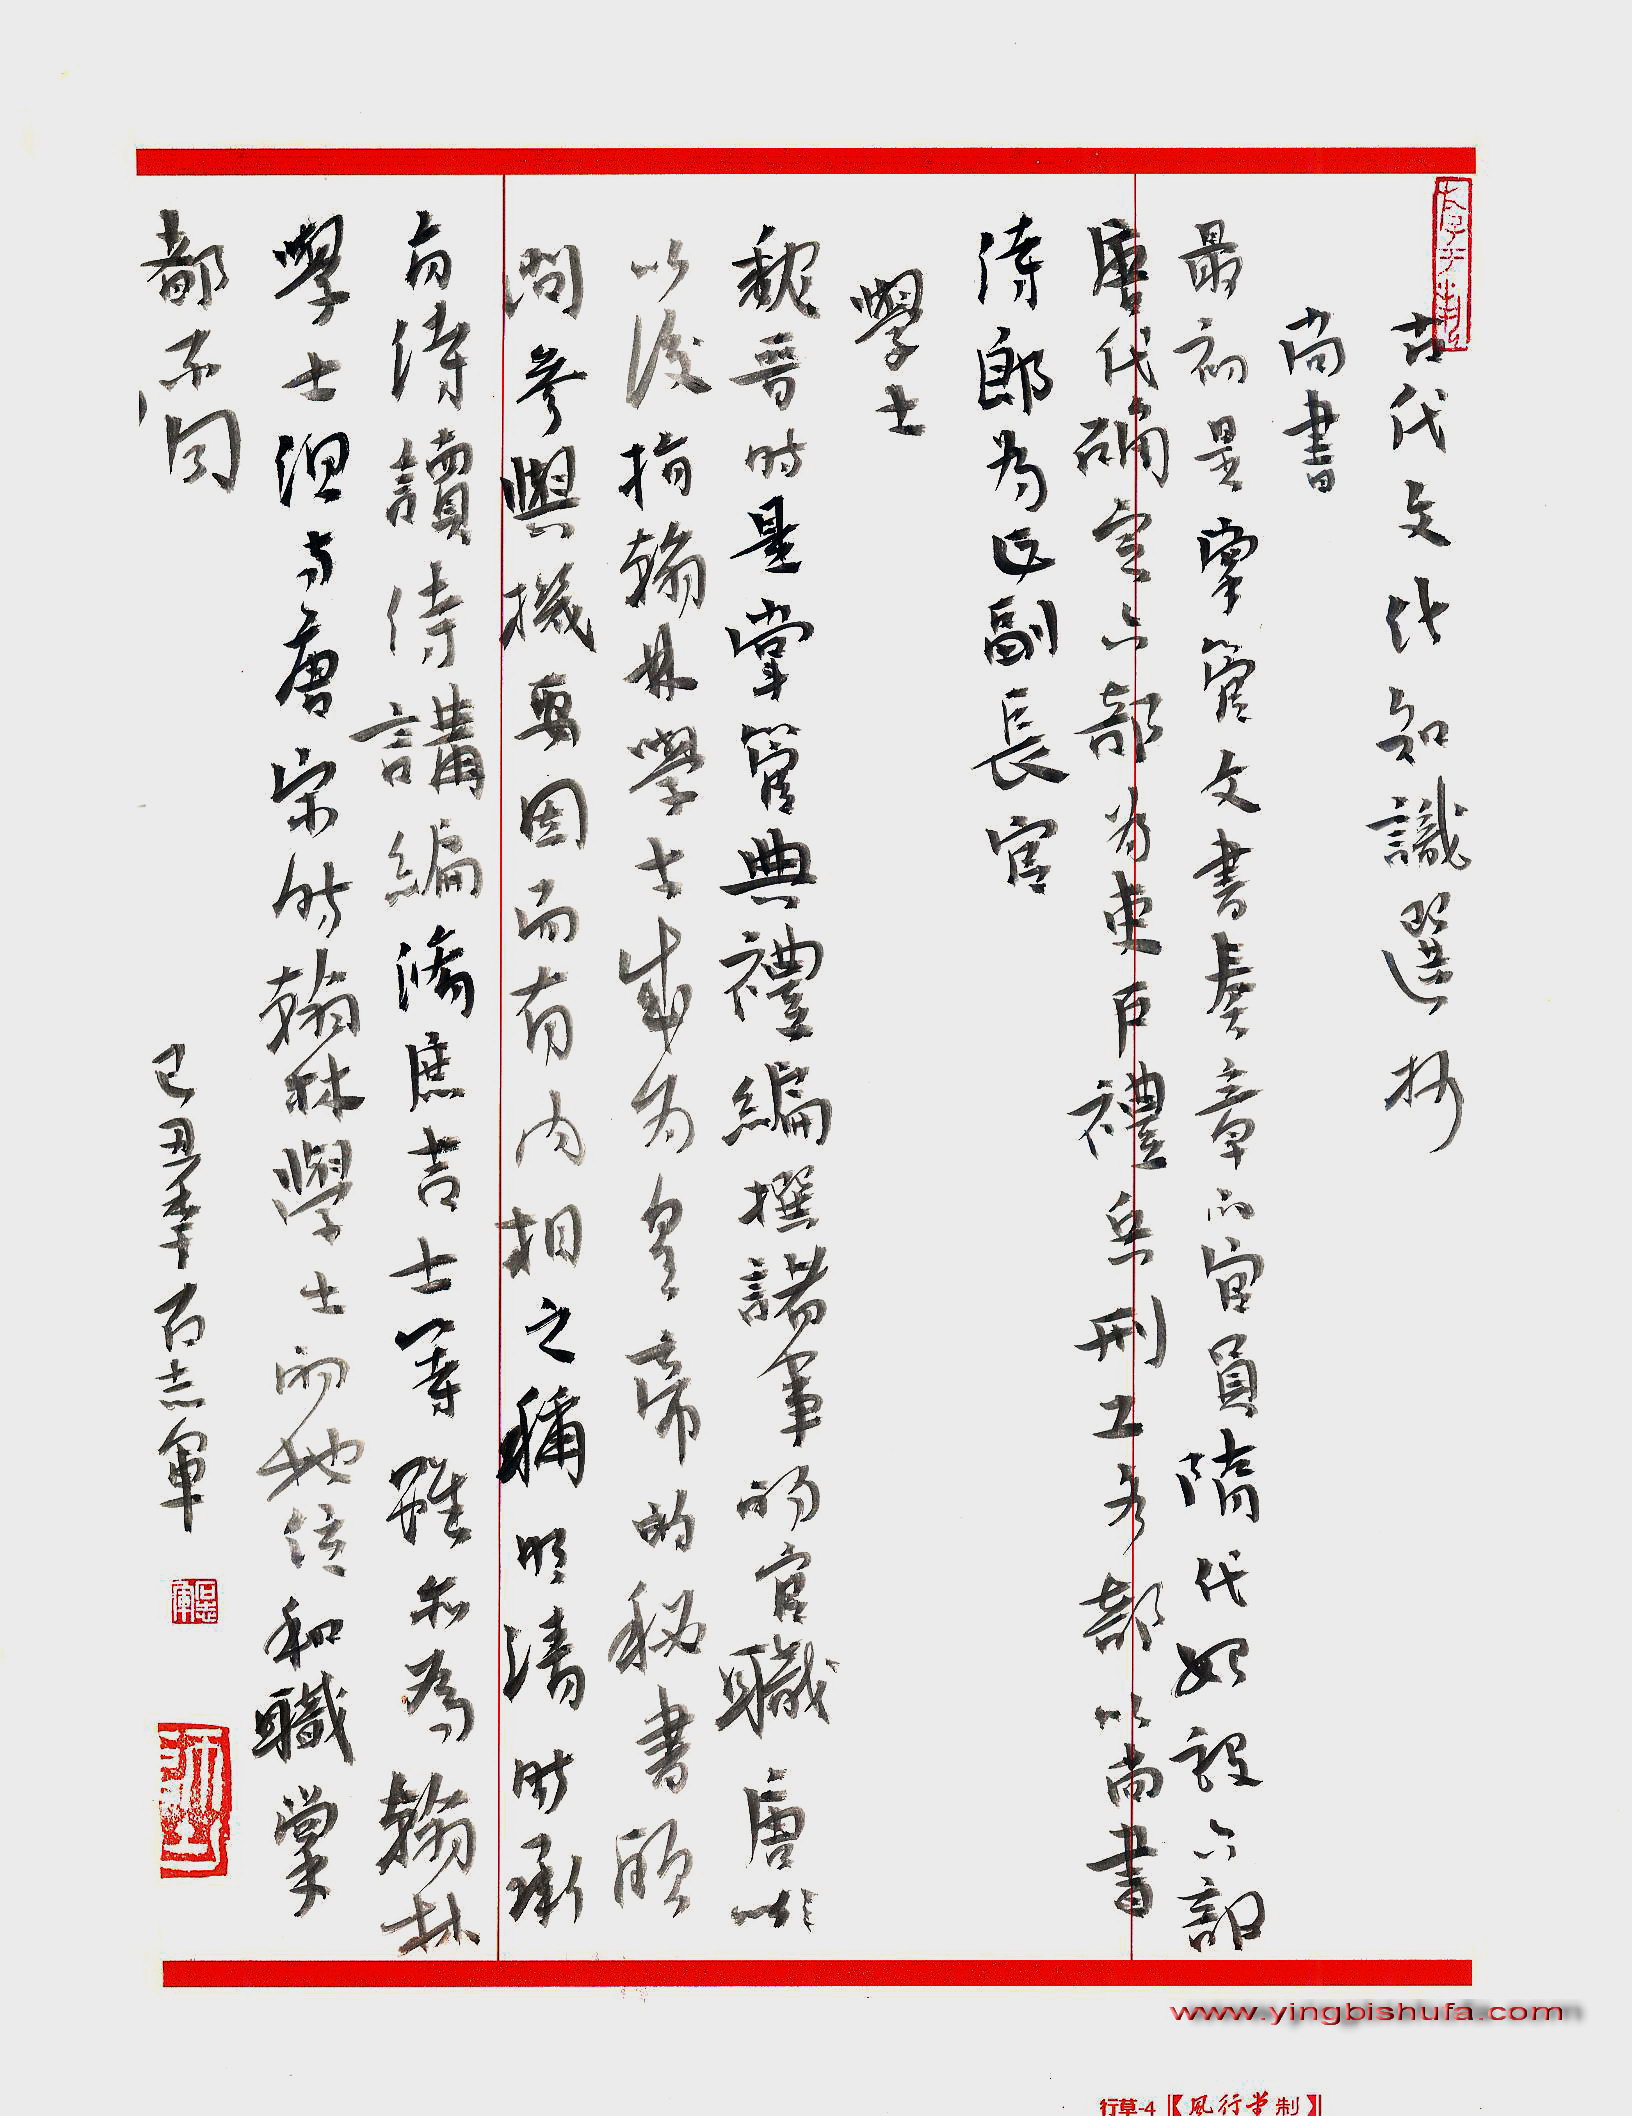 古代文化知識選抄
尚書
最初是掌管文書奏章的官員隋代始設六部
唐代確定六部為吏戶禮兵刑工各部以尚書
侍郎為正副長官
學士
魏晉時是掌管典禮編撰諸事的官職唐以
以後指翰林學士成為皇帝的秘書顧
問參與機要因而有內相之稱明清時承
旨侍讀侍講編修庶吉士等雖亦為翰林
學士但與唐宋時翰林學士的地位和職掌
都不同
己丑季 石志軍
www.yingbishufa.com
行草-4【風行堂制】